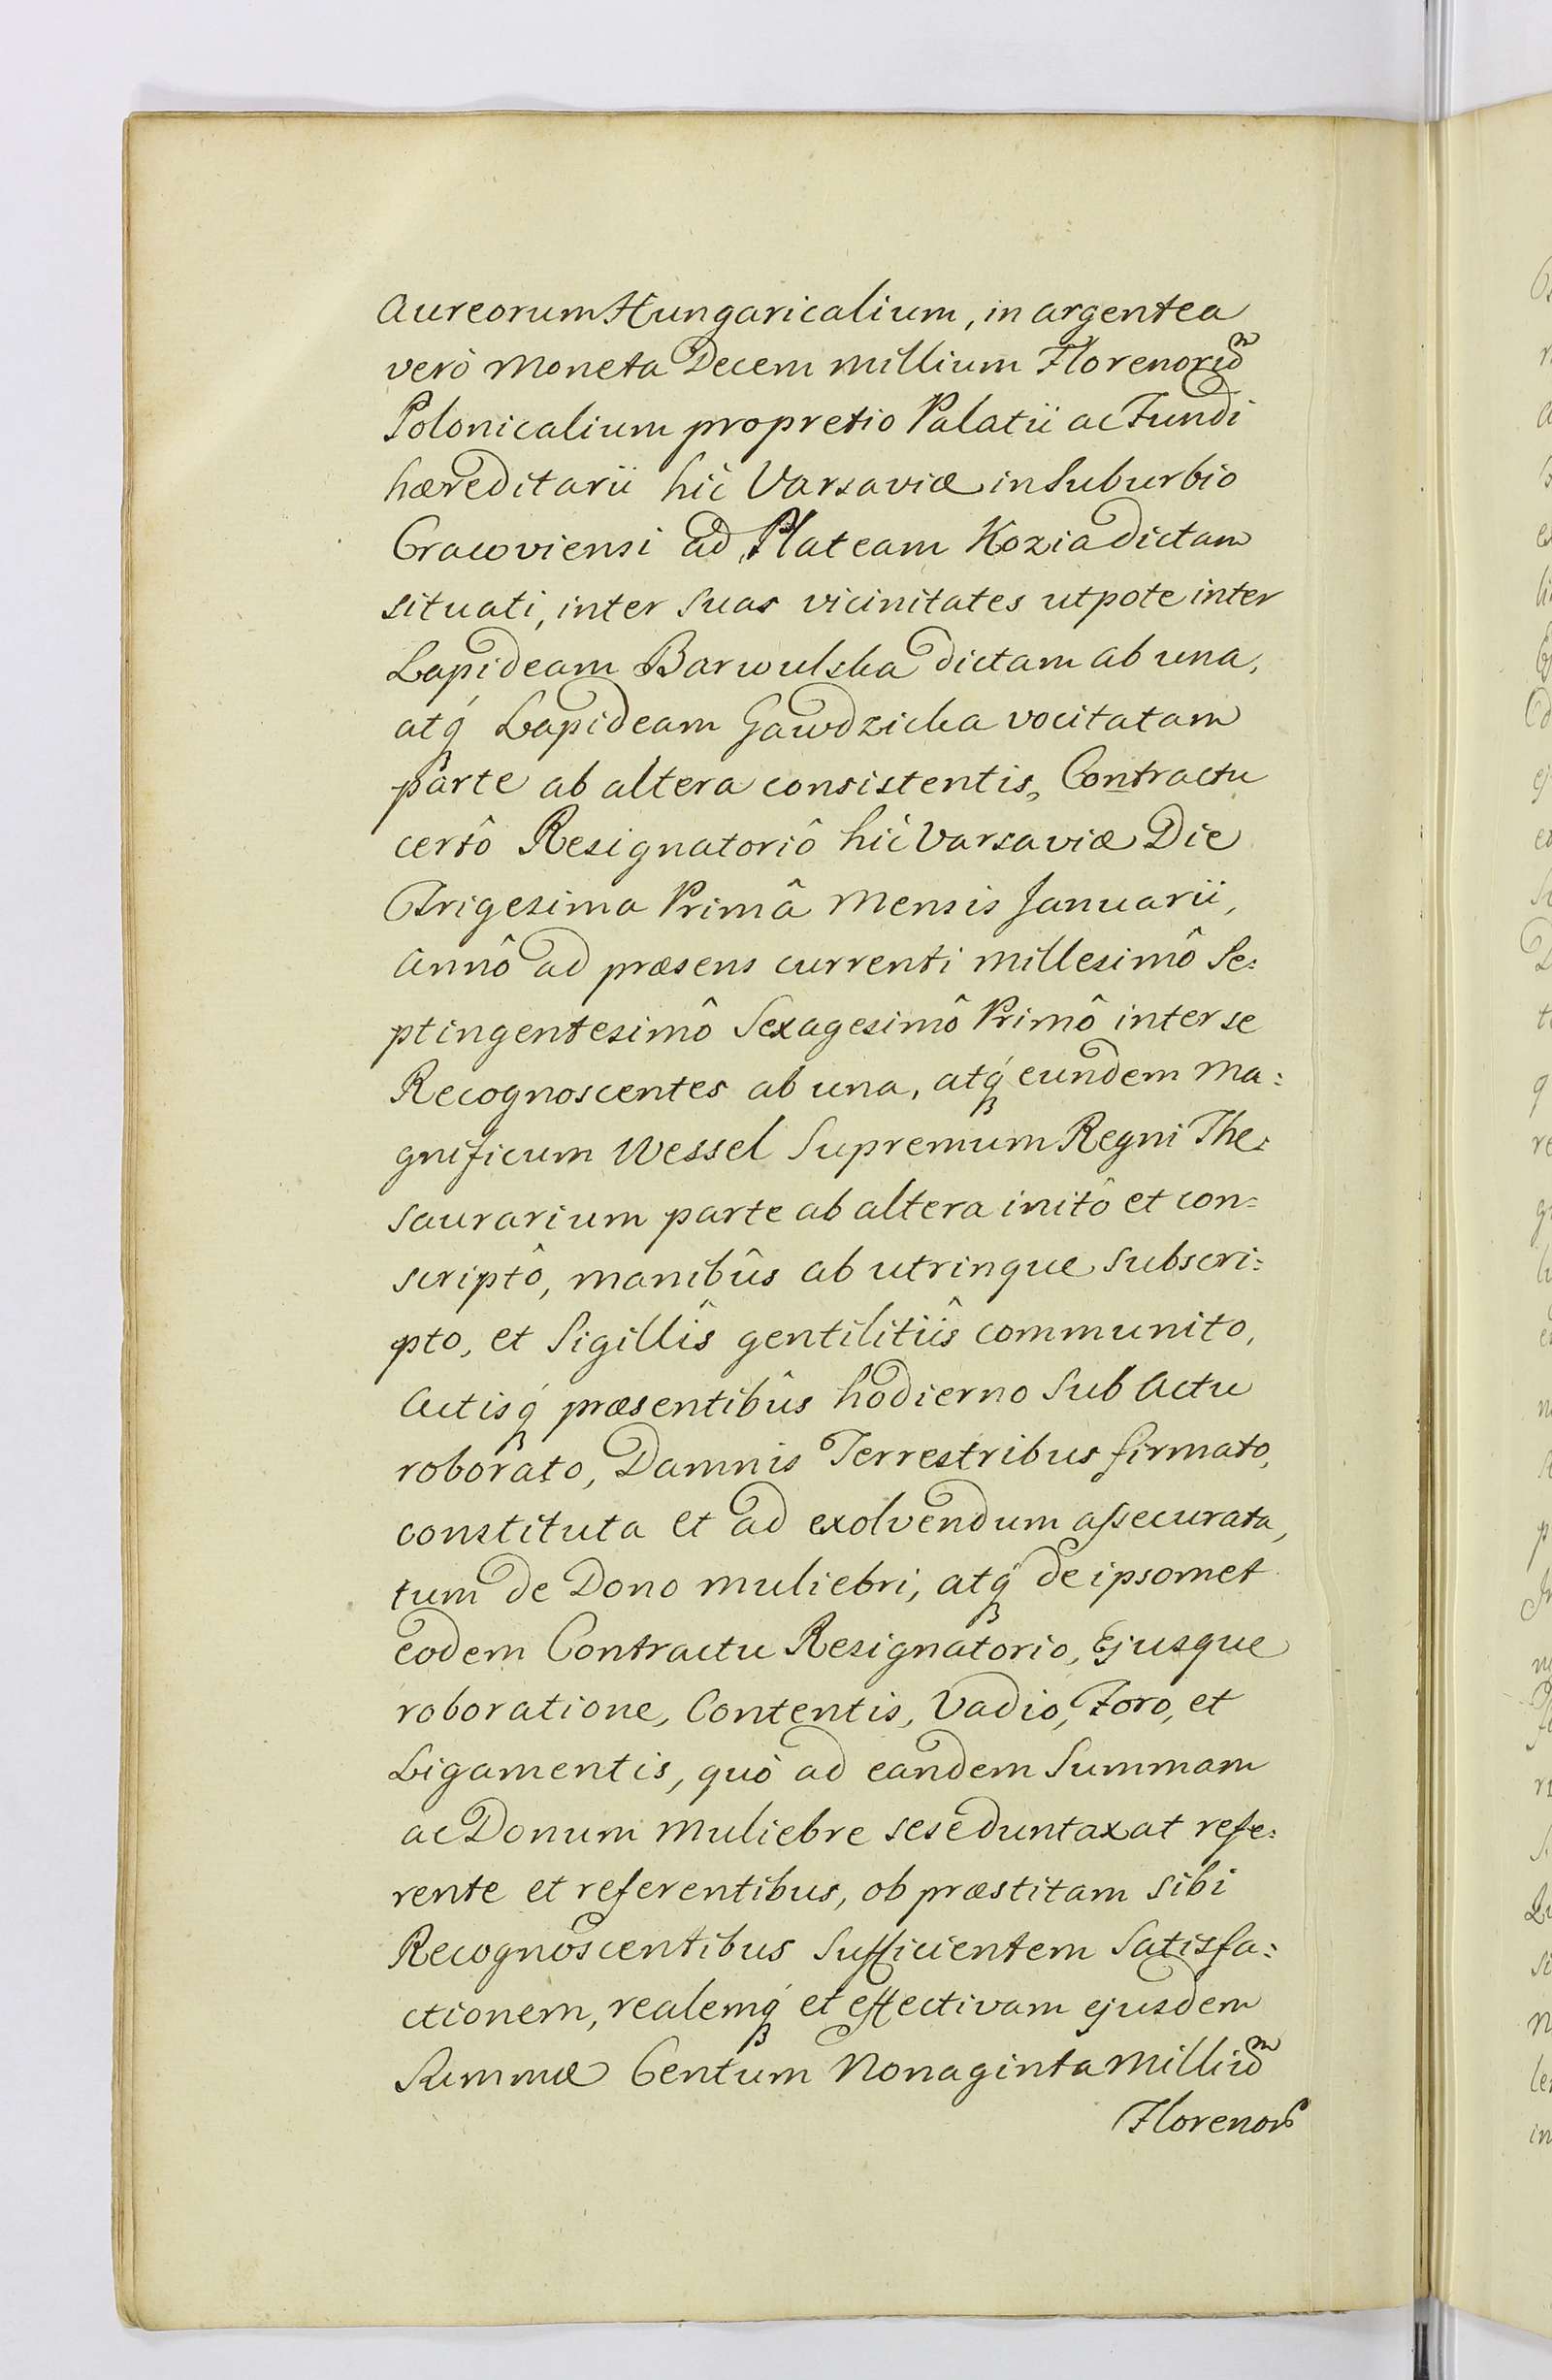 Aureorum Hungaricalium, in argentea
verò Moneta Decem Millium Florenorũ
Polonicalium pro pretio Palatii ac Fundi
hæreditarii hìc Varsaviæ in Suburbio
Cracoviensi ad Plateam Kozia dictam
situati, inter suas vicinitates utpote inter
Lapideam Barwulska dictam ab una,
atq́ Lapideam Gawdzicka vocitatam
parte ab altera consistentis, Contractu
certô Resignatoriô hìc Varsaviæ Die
Trigesima Primâ Mensis Januarii,
Annô ad præsens currenti Millesimô Se:
ptingentesimô Sexagesimô Primô inter se
Recognoscentes ab una, atq́ eundem Ma:
gnificum Wessel Supremum Regni The:
saurarium parte ab altera initô et con:
scriptô, manibûs ab utrinque subscri:
pto, et Sigillîs gentilitiîs communito,
Actisq́ præsentibûs hodierno sub Actu
roborato, Damnis Terrestribus firmato,
constituta et ad exolvendum assecurata,
tum de Dono muliebri, atq́ de ipsomet
eodem Contractu Resignatorio, Ejusque
roboratione, Contentis, Vadio, Foro, et
Ligamentis, quò ad eandem Summam
ac Donum Muliebre sesè duntaxat refe:
rente et referentibus, ob præstitam sibi
Recognoscentibus sufficientem Satisfa:
ctionem, realemq́ et effectivam ejusdem
Summæ Centum Nonaginta Milliũ
Florenor